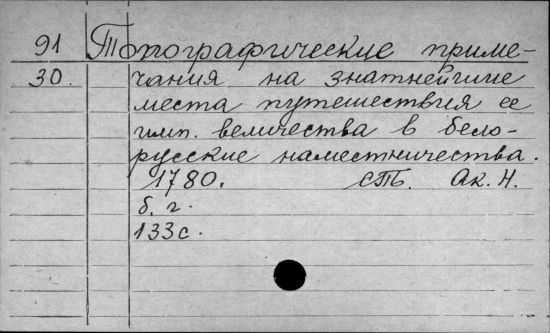 91 Топографические приме-
30. чания на знатнейшие
места путешествия ее
имп. величества в бело-
русские наместничества.
1780. СПб. Ак. Н.
б. г.
133 с.